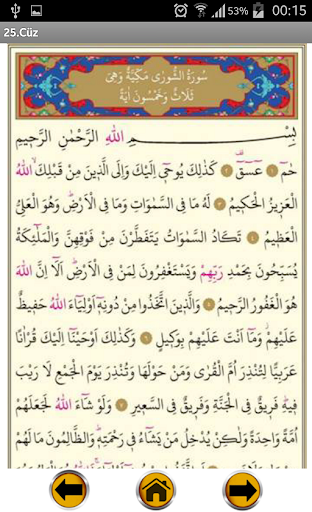 53% 00:15
25.Cüz
سُورَةُ الشُّورٰى مَكِّيَّةٌ وَهِيَ
ثَلَاثٌ وَخَمْسُونَ اٰيَةً
بِسْمِ اللهِ الرَّحْمٰنِ الرَّحِيمِ
حٰمٓ ﴿١﴾ عٓسٓقٓ ﴿٢﴾ كَذٰلِكَ يُوحٓى اِلَيْكَ وَاِلَى الَّذِينَ مِنْ قَبْلِكَۙ اللهُ
الْعَزِيزُ الْحَكِيمُ ﴿٣﴾ لَهُ مَا فِي السَّمٰوَاتِ وَمَا فِي الْاَرْضِۜ وَهُوَ الْعَلِيُّ
الْعَظِيمُ ﴿٤﴾ تَكَادُ السَّمٰوَاتُ يَتَفَطَّرْنَ مِنْ فَوْقِهِنَّ وَالْمَلٰٓئِكَةُ
يُسَبِّحُونَ بِحَمْدِ رَبِّهِمْ وَيَسْتَغْفِرُونَ لِمَنْ فِي الْاَرْضِۜ اَلَٓا اِنَّ اللهَ
هُوَ الْغَفُورُ الرَّحِيمُ ﴿٥﴾ وَالَّذِينَ اتَّخَذُوا مِنْ دُونِهٓ اَوْلِيَٓاءَ اللهُ حَفِيظٌ
عَلَيْهِمْۘ وَمَٓا اَنْتَ عَلَيْهِمْ بِوَكِيلٍ ﴿٦﴾ وَكَذٰلِكَ اَوْحَيْنَٓا اِلَيْكَ قُرْاٰنًا
عَرَبِيًّا لِتُنْذِرَ اُمَّ الْقُرٰى وَمَنْ حَوْلَهَا وَتُنْذِرَ يَوْمَ الْجَمْعِ لَا رَيْبَ
فِيهِۜ فَرِيقٌ فِي الْجَنَّةِ وَفَرِيقٌ فِي السَّعِيرِ ﴿٧﴾ وَلَوْ شَٓاءَ اللهُ لَجَعَلَهُمْ
اُمَّةً وَاحِدَةً وَلٰكِنْ يُدْخِلُ مَنْ يَشَٓاءُ فِي رَحْمَتِهٖۜ وَالظَّالِمُونَ مَا لَهُمْ